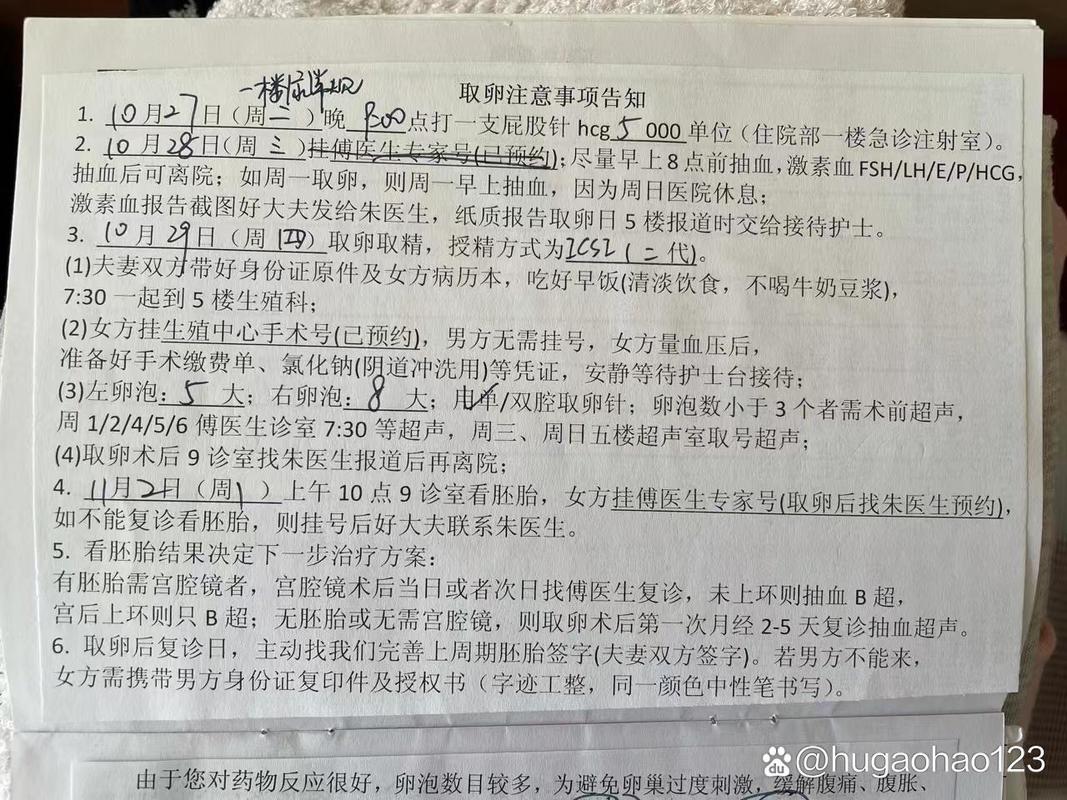 一楼尿常规
取卵注意事项告知
1. 10月27日（周二）晚 800点打一支屁股针 hcg 5 000 单位（住院部一楼急诊注射室）。
2. 10月28日（周三）挂傅医生专家号(已预约)；尽量早上8点前抽血，激素血FSH/LH/E/P/HCG，
抽血后可离院；如周一取卵，则周一早上抽血，因为周日医院休息；
激素血报告截图好大夫发给朱医生，纸质报告取卵日5楼报道时交给接待护士。
3. 10月29日（周四）取卵取精，授精方式为ICSI（二代）。
(1)夫妻双方带好身份证原件及女方病历本，吃好早饭(清淡饮食，不喝牛奶豆浆)，
7:30 一起到5楼生殖科；
(2)女方挂生殖中心手术号(已预约)，男方无需挂号，女方量血压后，
准备好手术缴费单、氯化钠(阴道冲洗用)等凭证，安静等待护士台接待；
(3)左卵泡：5 大；右卵泡：8 大；用单/双腔取卵针；卵泡数小于3个者需术前超声，
周1/2/4/5/6傅医生诊室7:30等超声，周三、周日五楼超声室取号超声；
(4)取卵术后9诊室找朱医生报道后再离院；
4. 11月2日（周1）上午10点9诊室看胚胎，女方挂傅医生专家号(取卵后找朱医生预约)，
如不能复诊看胚胎，则挂号后好大夫联系朱医生。
5. 看胚胎结果决定下一步治疗方案：
有胚胎需宫腔镜者，宫腔镜术后当日或者次日找傅医生复诊，未上环则抽血B超，
宫后上环则只B超；无胚胎或无需宫腔镜，则取卵术后第一次月经2-5天复诊抽血超声。
6. 取卵后复诊日，主动找我们完善上周期胚胎签字(夫妻双方签字)。若男方不能来，
女方需携带男方身份证复印件及授权书（字迹工整，同一颜色中性笔书写）。
由于您对药物反应很好，卵泡数目较多，为避免卵巢过度刺激，缓解腹痛、腹胀、
du @hugaohao123